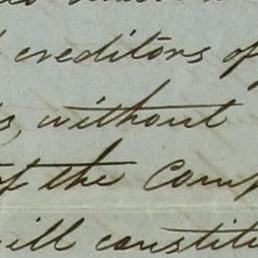 creditors of
without
of the Comp
will constitu